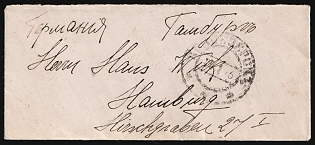 Германия Гамбургъ
Herrn Hans
Hamburg
Hirschgraben 27 I